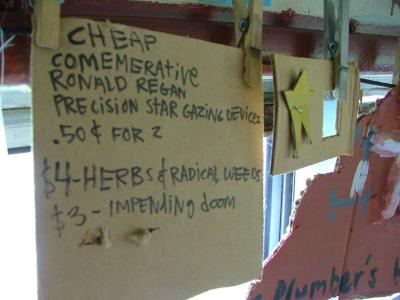 CHEAP
COMEMERATIVE
RONALD REGAN
PRECISION STAR GAZING DEVICES
.50¢ FOR 2
$4-HERBS & RADICAL WEEDS
$3-IMPENDING DOOM
Plumber's